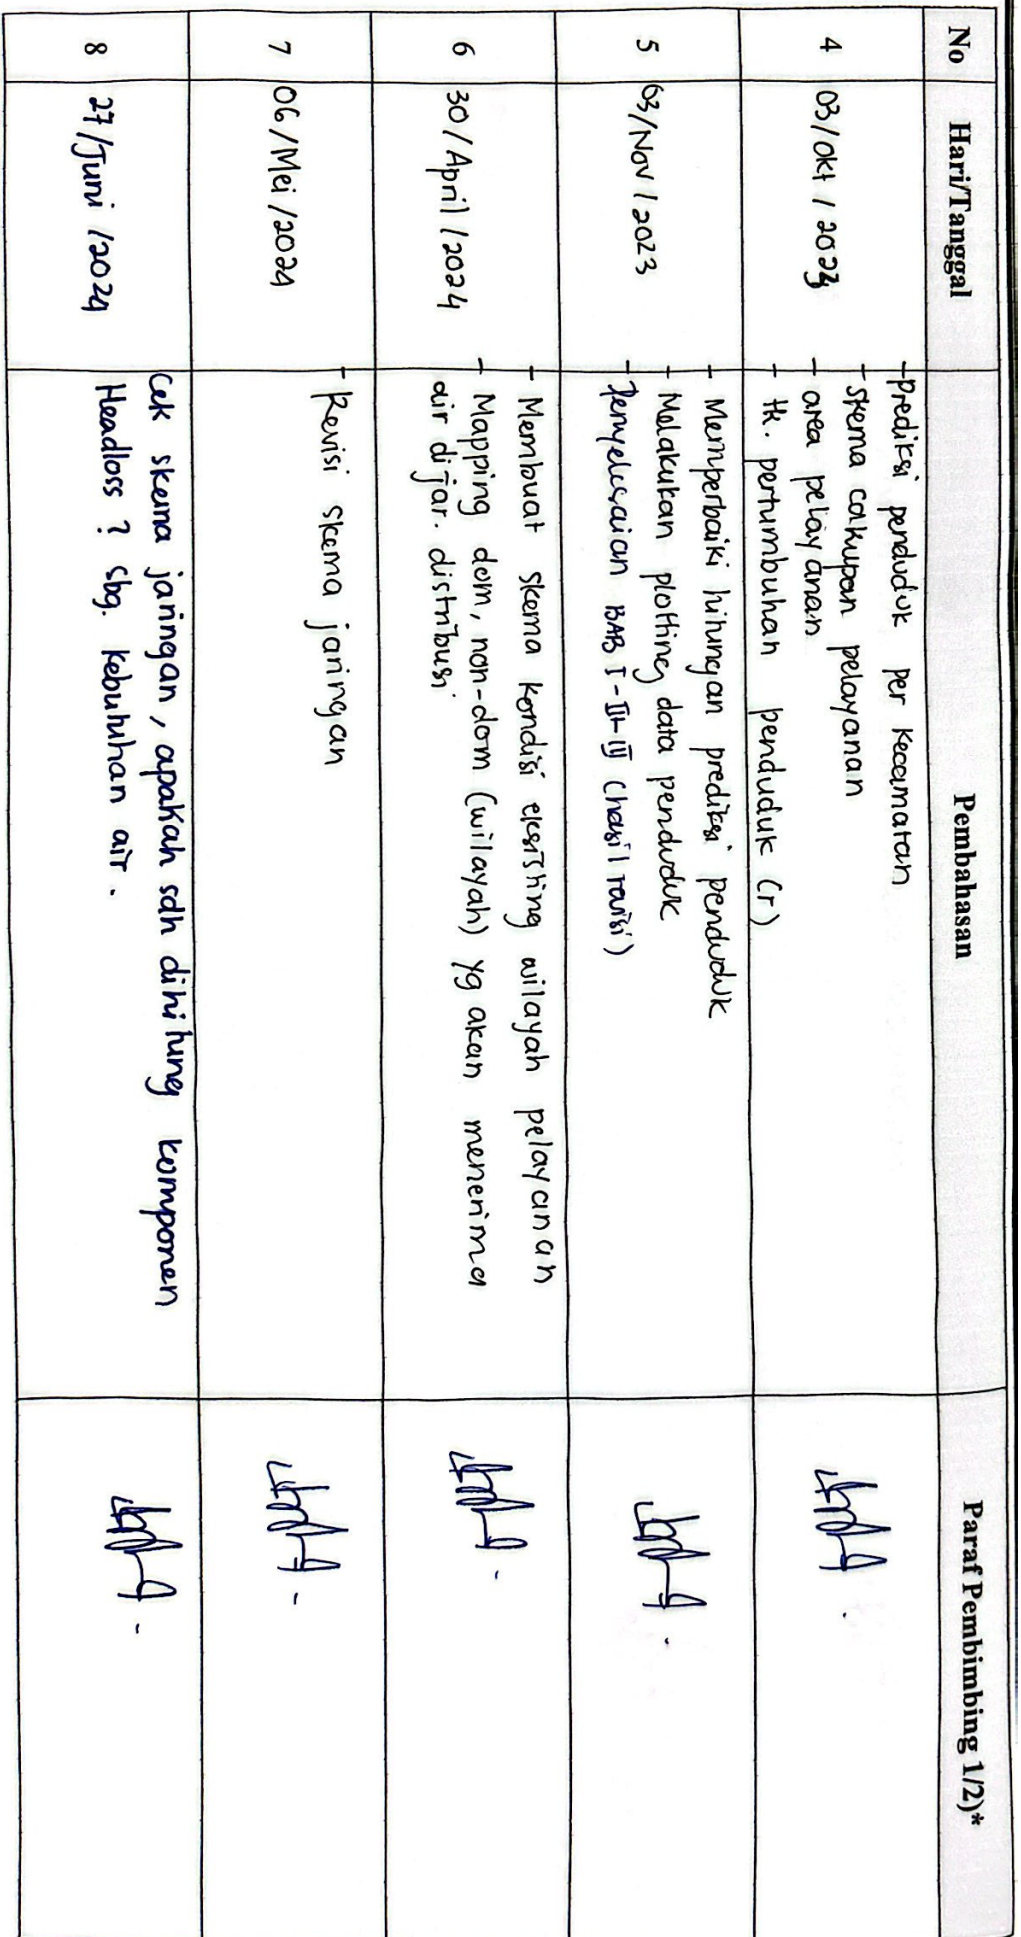 No Hari/Tanggal Pembahasan Paraf Pembimbing 1/2)*
4 03/Okt/2023
- Prediksi penduduk per kecamatan
- Skema cakupan pelayanan
- area pelayanan
- tk. pertumbuhan penduduk (r)
5 03/Nov/2023
- Memperbaiki hitungan prediksi penduduk
- Melakukan plotting data penduduk
- Penyelesaian BAB I-II-III (hasil revisi)
6 30/April/2024
- Membuat skema kondisi eksisting wilayah pelayanan
- Mapping dom, non-dom (wilayah) yg akan menerima
air di jar. distribusi
7 06/Mei/2024
- Revisi skema jaringan
8 27/Juni/2024
Cek skema jaringan, apakah sdh dihitung komponen
Headloss? sbg. kebutuhan air.